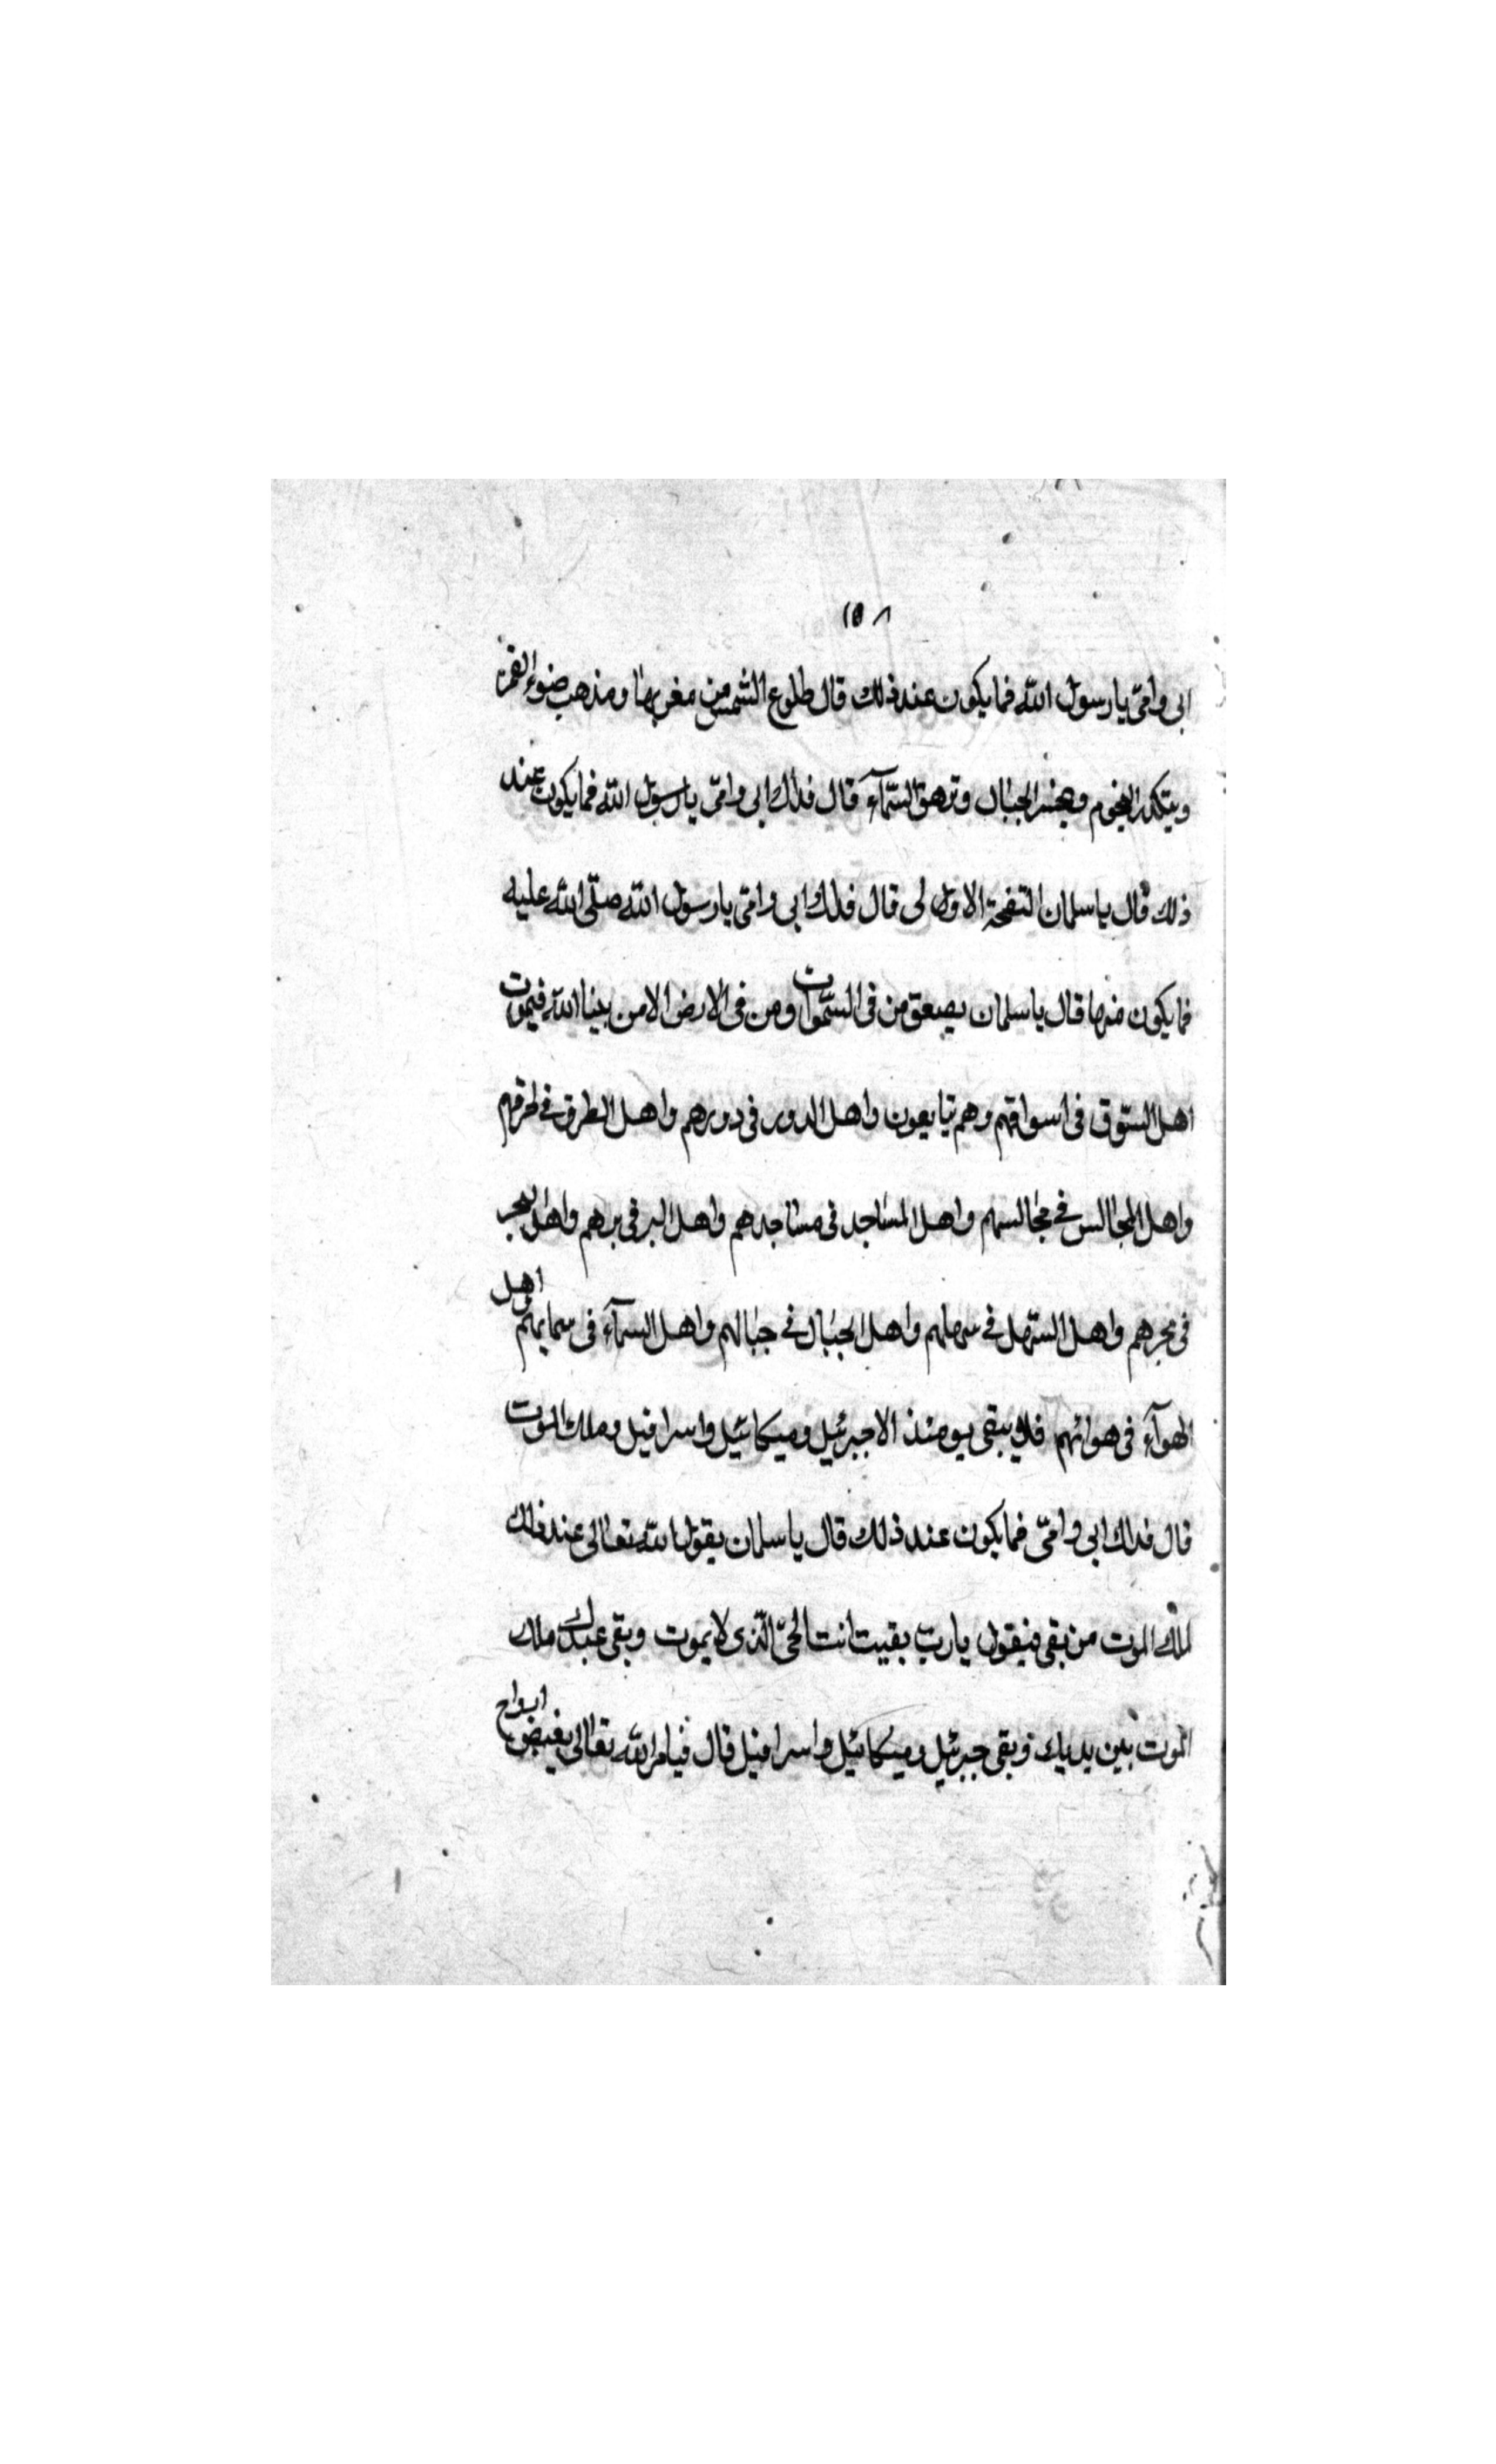 ١٥٨
ابى وامّى يا رسول اللّه فما يكون عند ذلك قال طلوع الشمس من مغربها ومذهب ضوء القمر
ويتكدر النجوم الجبال وترهق السّمآء قال فداك ابى وامّى يا رسول اللّه فما يكون عند
ذلك قال يا سلمان النفخة الاولى لى قال فداك ابى وامّى يا رسول اللّه صلّى اللّه عليه
فما يكون منها قال يا سلمان يصعق من فى السّموات ومن فى الارض الا من يشا اللّه فيموت
اهل السّوق فى اسواقهم وهم يتبايعون واهل الدور فى دورهم واهل الطرق فى طرقهم
واهل المجالس فى مجالسهم واهل المساجد فى مساجدهم واهل البر فى برهم واهل البحر
فى بحرهم واهل السّهل فى سهلهم واهل الجبال فى جبالهم واهل السمآء فى سمايهم اهل
الهوآء فى هوائهم فلا يبقى يومئذ الا جبرئيل وميكائيل واسرافيل وملك الموت
قال فداك ابى وامّى فما يكون عند ذلك قال يا سلمان يقول اللّه تعالى عند ذلك
لملك الموت من بقى فيقول يا ربّ بقيت انت الحىّ الّذى لا يموت وبقى عبدك ملك
الموت بين يديك وبقى جبرئيل وميكائيل واسرافيل قال فيامر اللّه تعالى بقبض ارواح